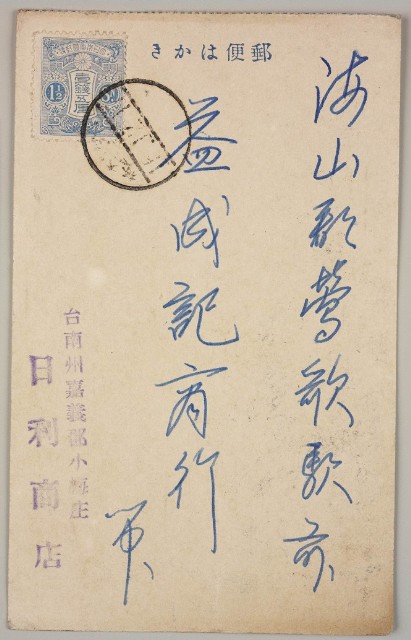 郵便はかき
海山郡鶯歌駅前
益成記商行
台南州嘉義郡小梅庄
日利商店
壹錢五厘
1½ Sn.